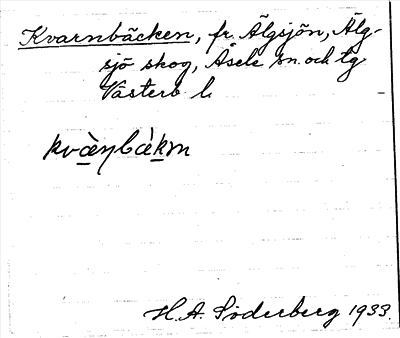 Kvarnbäcken, fr. Älgsjön, Älg-
sjö skog, Åsele sn. och tg
Västerb. l.
kvà̱ŋbàḵm
H.A. Söderberg 1933.